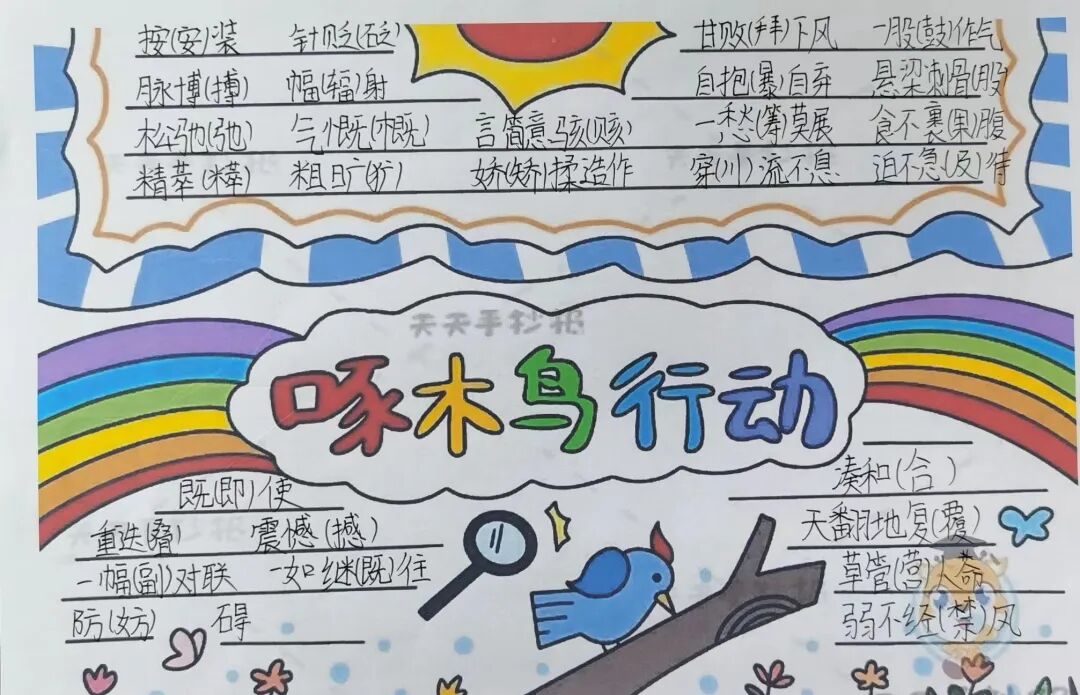 按(安)装 针贬(砭) 甘败(拜)下风 一股(鼓)作气
脉博(搏) 幅(辐)射 自抱(暴)自弃 悬梁刺骨(股)
松驰(弛) 气慨(概) 言简意骇(赅) 一愁(筹)莫展 食不裹(果)腹
精萃(粹) 粗旷(犷) 娇(矫)揉造作 穿(川)流不息 迫不急(及)待
天天手抄报
啄木鸟行动
既(即)使 凑和(合)
重迭(叠) 震憾(撼) 天翻地复(覆)
一幅(副)对联 一如继(既)往 草管(菅)人命
防(妨)碍 弱不经(禁)风